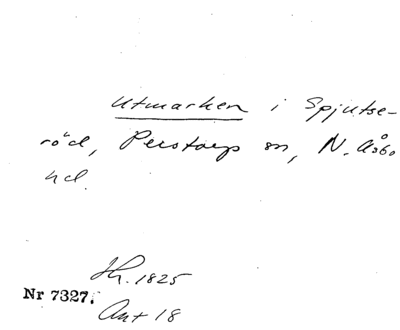 Utmarken i Spjutse-
röd, Perstorp sn, N. Åsbo
hd.
Hr. 1825
Nr 7327.
Ant 18